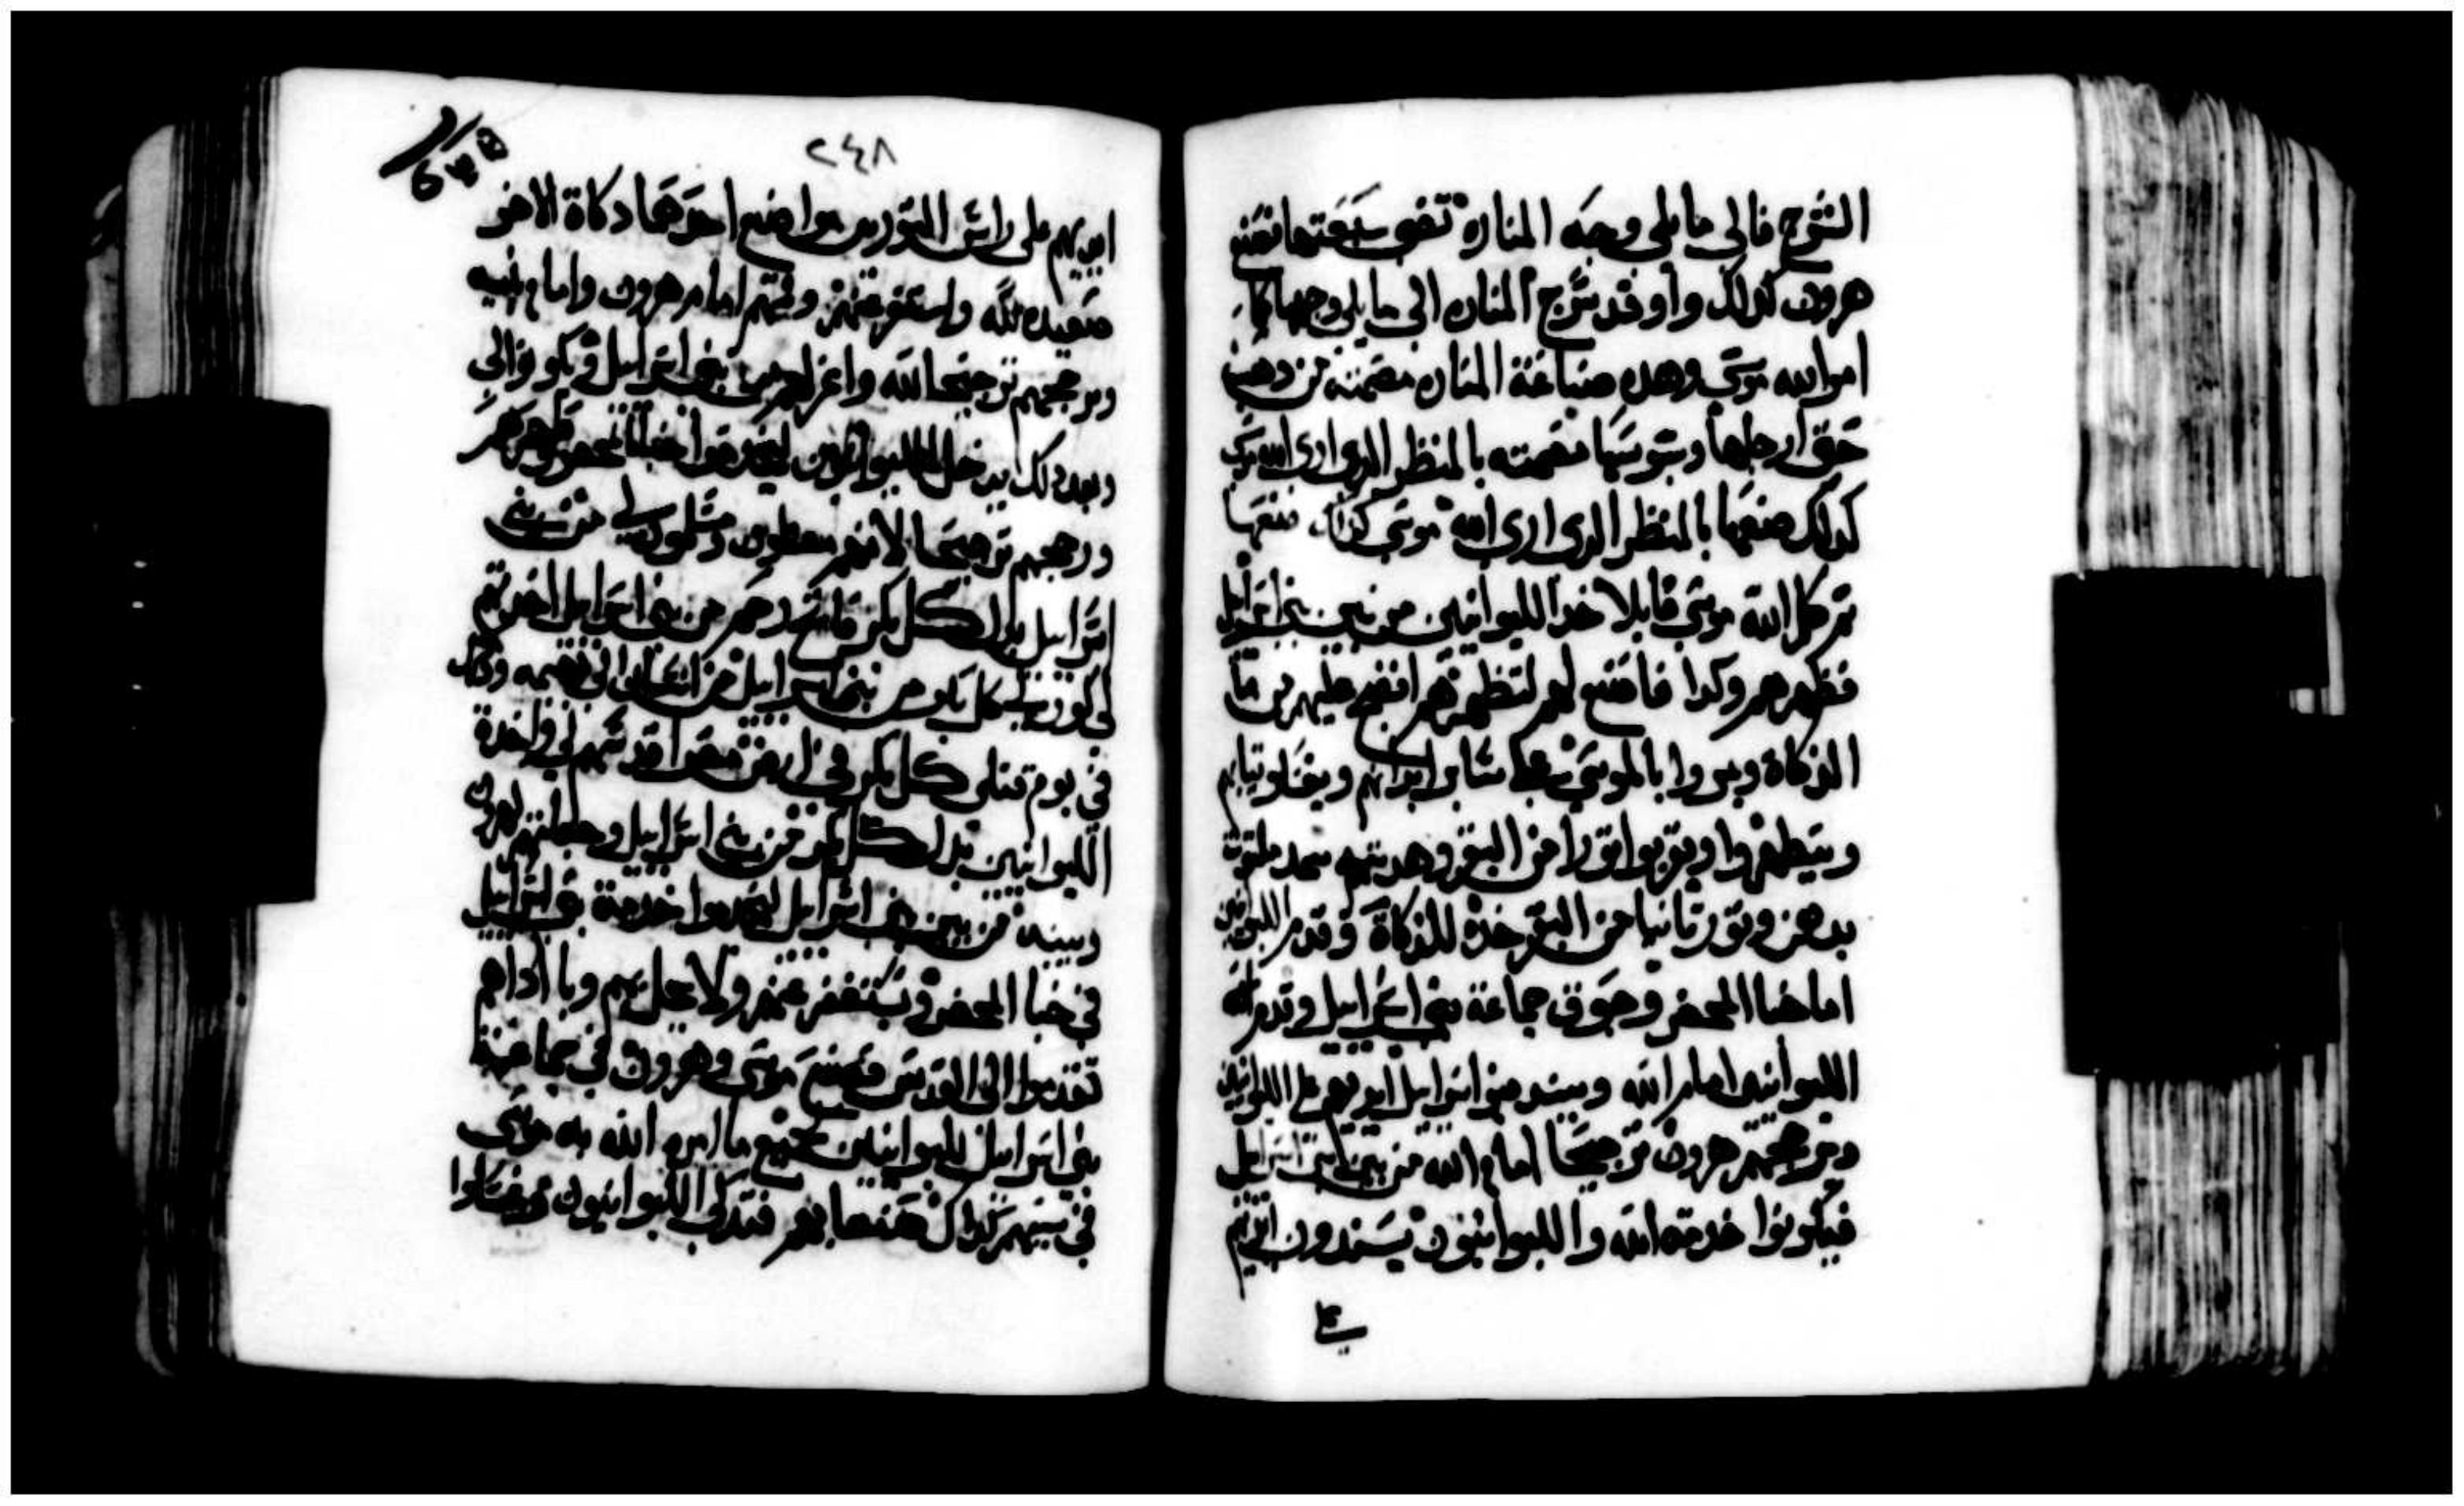 السرج فالي ما يلي وجه المناره تضي سبعتها فصنع
هرون كذلك واوقد سرج المناره الى ما يلي وجهها كما
امر الله موسى وهذه صناعة المناره مصمته من دهب
حتى ارجلها وسوسنها مصمته بالمنظر الذي ارى الله موسى
كدلك صنعها بالمنظر الدي ارى الله موسى كذلك صنعها
ثم كلم الله موسى قايلا خد الليوانيين من بين بني اسراييل
فطهرهم وكدا فاصنع لهم لتطهرهم انضح عليهم من ما
الذكاة ويمروا بالموسى على سائر ابدانهم ويغسلوا ثيابهم
ويتطهروا ويقربوا ثورا من البقر وهديته سمد ملتوت
بدهن وثور ثانيا من البقر خذه للذكاة وقدم الليوانيين
امام خبا المحضر وجوق جماعة بني اسراييل وقدم
الليوانيين امام الله ويسند بنو اسراييل ايديهم على الليوانيين
ويرجحهم هرون ترجيحا امام الله من بين بني اسراييل
فيكونوا خدمة الله والليوانيون يسندون ايديهم
٢٤٨
ايديهم على راس الثورين واصنع احدهما دكاة والاخر
صعيده لله واستغفر عنهم وقيمهم امام هرون وامام بنيه
ورجحهم ترجيحا لله واعزلهم من بني اسراييل ويكونوا لي
وبعد ذلك يدخل الليوانيين ليخدموا خبا المحضر وطهرهم
ورجحهم ترجيحا لانهم معطون ومسلمون لي من بني
اسراييل بدل كل بكر فاتح رحم من بني اسراييل اخدتهم
لي كون لي كل بكر من بني اسراييل من انسان الى بهيمه وكل
في يوم قتلى كل بكر في ارض مصر اقدستهم لي واخدت
الليوانيين بدل كل بكر من بني اسراييل وجعلتهم لهرون
وبنيه من بين بني اسراييل ليخدموا خدمة بني اسراييل
في خبا المحضر ويستغفر عنهم ولا يحل بهم وبا اداهم
تقدموا الى القدس فصنع موسى وهرون في جماعة
بني اسراييل لليوانيين جميع ما امر الله به موسى
في سببهم كذلك صنعوا بهم فتدكى الليوانيون وغسلوا